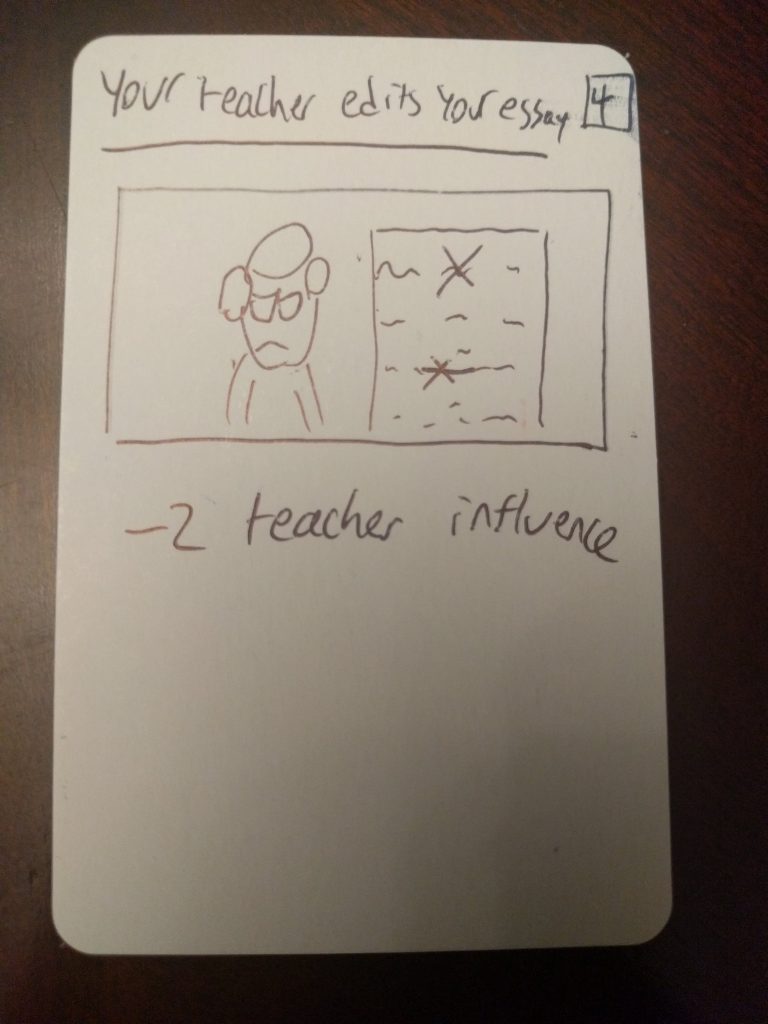 Your teacher edits your essay 4
-2 teacher influence